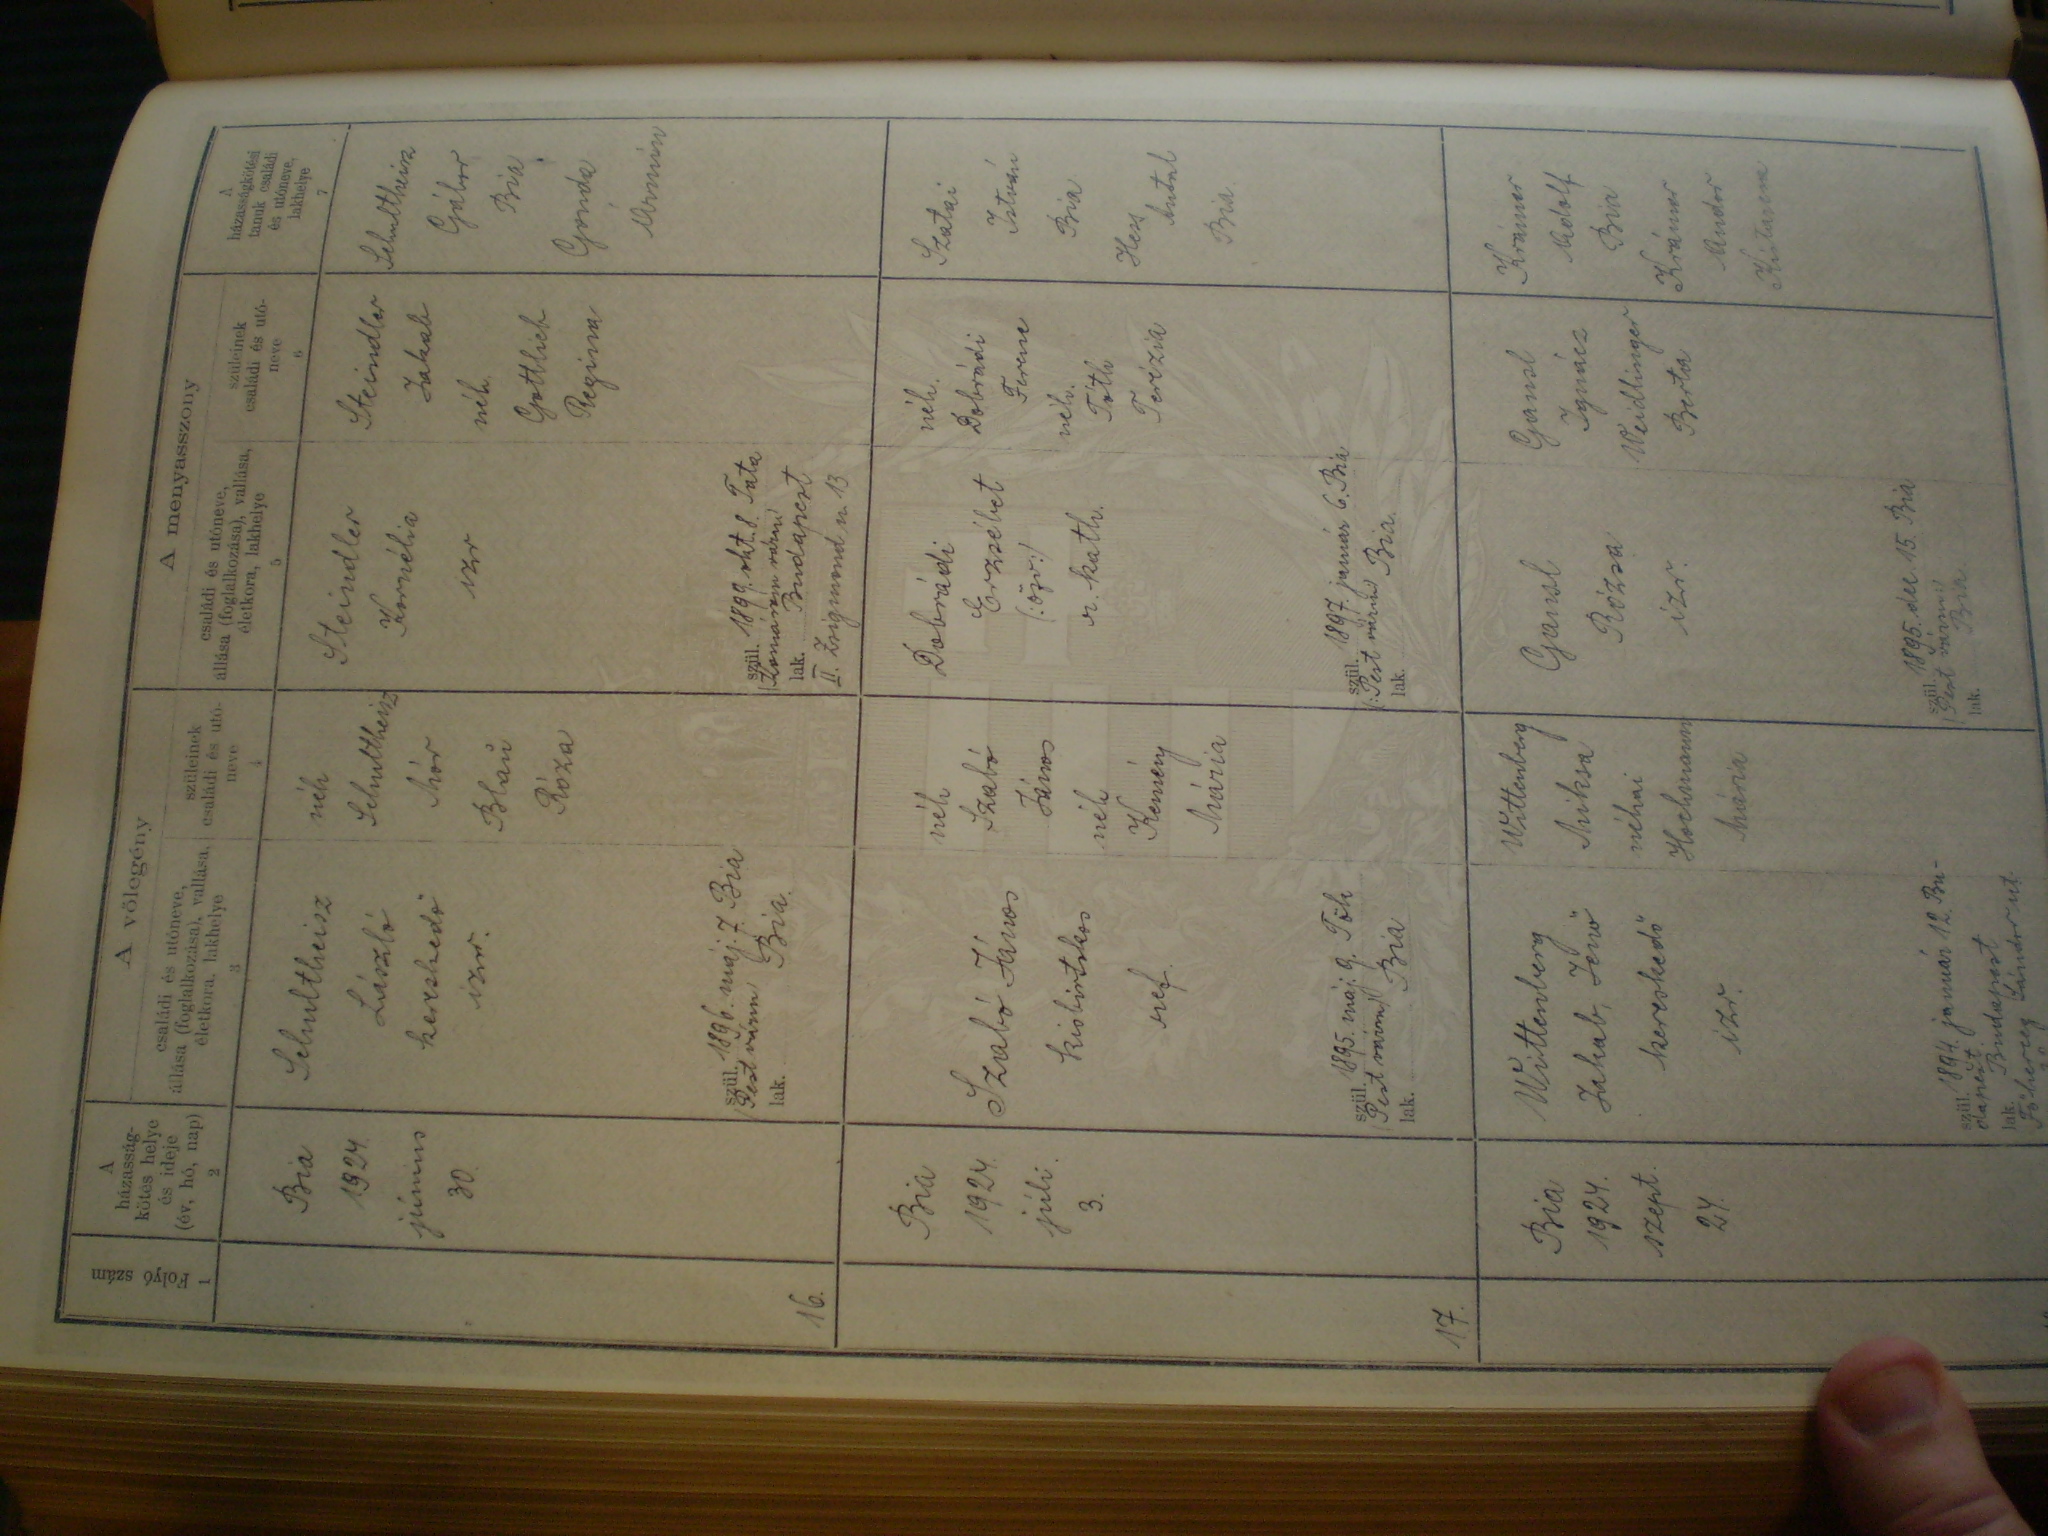 1
Folyó szám
2
A
házasság-
kötés helye
és ideje
(év, hó, nap)
A vőlegény
3
családi és utóneve,
állása (foglalkozása), vallása,
életkora, lakhelye
4
szüleinek
családi és utó-
neve
A menyasszony
5
családi és utóneve,
állása (foglalkozása), vallása,
életkora, lakhelye
6
szüleinek
családi és utó-
neve
7
A
házasságkötési
tanuk családi
és utóneve,
lakhelye
16.
Bia
1924.
június
30.
Schultheisz
László
kereskedő
izr.
szül. 1896. máj. 7. Bia
(Pest várm)
lak. Bia.
néh
Schultheisz
Mór
Blau
Róza
Steindler
Kornélia
izr
szül. 1899. okt. 8. Tata
lak. Budapest
II. Zsigmond u. 13
Steindler
Jakab
néh.
Gottlieb
Regina
Schultheisz
Gábor
Bia
Gonda
Ármin
17.
Bia
1924.
júli.
3.
Szabó János
kisbirtokos
ref.
szül. 1895. máj. 9. Tök
(Pest várm)
lak. Bia
néh
Szabó
János
néh
Kemény
Mária
Dobrádi
Erzsébet
(:özv:)
r. kath.
szül. 1897. január 6. Bia
(:Pest várm)
lak. Bia.
néh.
Dobrádi
Ferenc
néh.
Tóth
Terézia
Szatai
István
Bia
Hess
Antal
Bia.
Bia
1924.
szept.
24.
Wittenberg
Jakab, Jenő
kereskedő
izr.
szül. 1894. január 12. Bu-
dapest.
lak. Budapest
Főherceg Sándor ut.
Wittenberg
Miksa
néhai
Hochmann
Mária
Gansl
Rózsa
izr.
szül. 1895. dec 15. Bia
(Pest várm)
lak. Bia.
Gansl
Ignácz
Weidlinger
Berta
Krámer
Adolf
Bia
Krámer
Andor